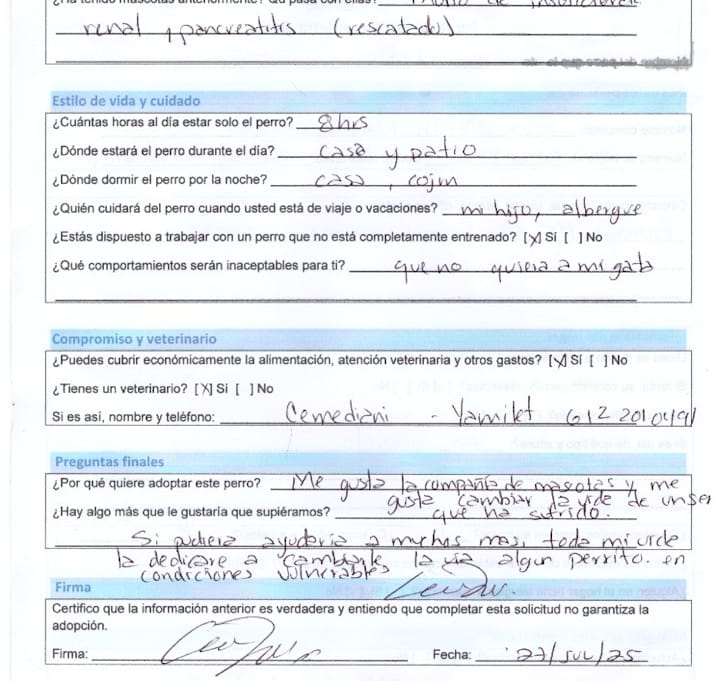 renal y pancreatitis (rescatado)
Estilo de vida y cuidado
¿Cuántas horas al día estar solo el perro? 8hrs
¿Dónde estará el perro durante el día? casa y patio
¿Dónde dormir el perro por la noche? casa, cojin
¿Quién cuidará del perro cuando usted está de viaje o vacaciones? mi hijo, albergue
¿Estás dispuesto a trabajar con un perro que no está completamente entrenado? [X] Sí [ ] No
¿Qué comportamientos serán inaceptables para ti? que no quiera a mi gato
Compromiso y veterinario
¿Puedes cubrir económicamente la alimentación, atención veterinaria y otros gastos? [X] Sí [ ] No
¿Tienes un veterinario? [X] Sí [ ] No
Si es así, nombre y teléfono: Cemediani - Yamilet 612 2010491
Preguntas finales
¿Por qué quiere adoptar este perro? Me gusta la compañía de mascotas y me
gusta cambiar la vida de un ser
¿Hay algo más que le gustaria que supiéramos? que ha sufrido.
Si pudiera ayudaria a muchos mas, toda mi vida
la dedicare a cambiarle la via algun perrito. en
condiciones vulnerables
Firma
Certifico que la información anterior es verdadera y entiendo que completar esta solicitud no garantiza la
adopción.
Firma: Fecha: 27/JUL/25